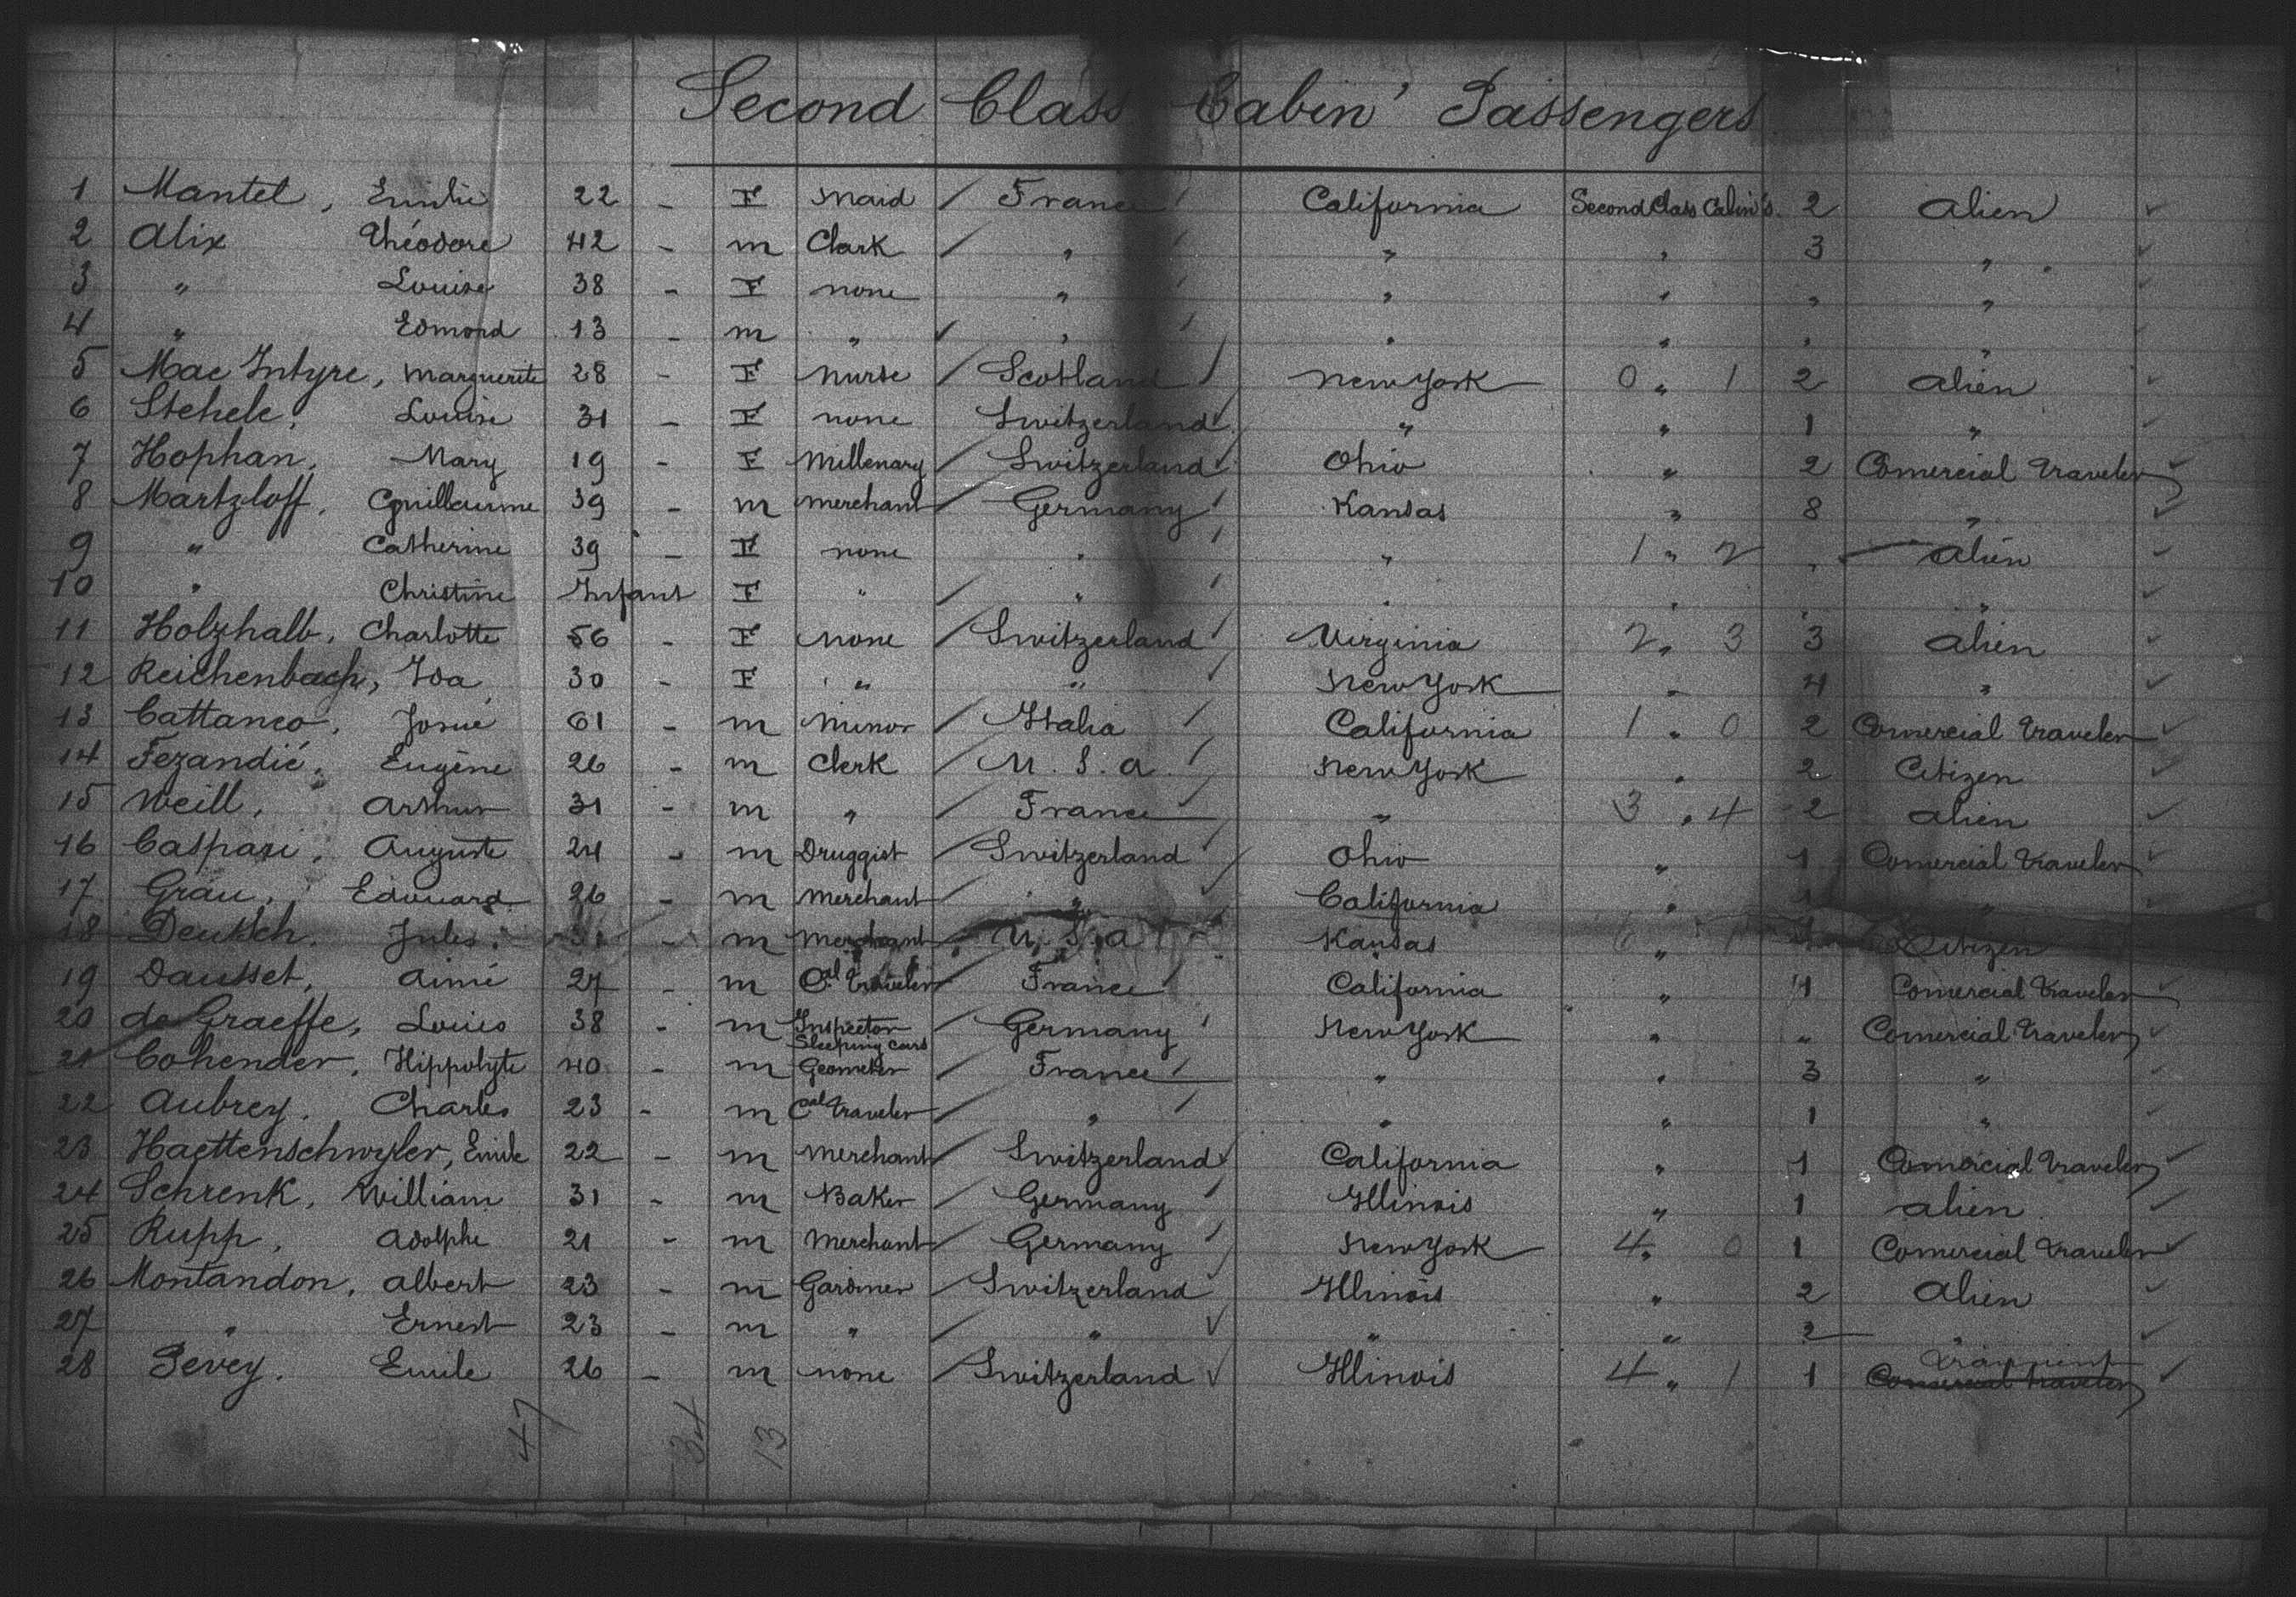 Second Class Cabin' Passengers
1 Mantel, Emilie 22 - F Maid / France California Second Class Cabin's. 2 Alien
2 Alix Théodore 42 - m Clark / " " " 3 "
3 " Louise 38 - F none " " " " "
4 " Edmond 13 - m " " " " " "
5 Mac Intyre, Marguerite 28 - F Nurse / Scotland New York 0 " 1 2 Alien
6 Stehele, Louise 31 - F none Switzerland " " 1 "
7 Hophan, Mary 19 - F Millenary / Switzerland Ohio " 2 Comercial Traveler
8 Martzloff, Guillaume 39 - m merchant / Germany Kansas " 8 "
9 " Catherine 39 - F none " " 1 " 2 " Alien
10 " Christine Infant F " / " " " " "
11 Holzhalb, Charlotte 56 - F none / Switzerland Virginia 2 " 3 3 Alien
12 Reichenbach, Ida 30 - F " " New York " 4 "
13 Cattaneo, Josué 61 - m minor / Italia California 1 " 0 2 Comercial Traveler
14 Fezandié, Eugène 26 - m Clerk / U. S. a. New York " 2 Citizen
15 Weill, Arthur 31 - m " / France " 3 " 4 2 Alien
16 Caspari, Auguste 24 - m Druggist / Switzerland Ohio " 1 Comercial Traveler
17 Grau, Edouard 26 - m Merchant / " California " "
18 Deutsch, Jules - m Merchant U. S. a Kansas " Citizen
19 Dausset, Aimé 27 - m Cal Traveler France California " 4 Comercial Traveler
20 de Graeffe, Louis 38 - m Inspector Sleeping cars / Germany New York " " Comercial Traveler
21 Cohender, Hippolyte 40 - m Geometer / France " " 3 "
22 Aubrey, Charles 23 - m Cal Traveler / " " " 1 "
23 Haettenschwyler, Emile 22 - m Merchant / Switzerland California " 1 Comercial Traveler
24 Schrenk, William 31 - m Baker / Germany Illinois " 1 alien
25 Rupp, Adolphe 21 - m Merchant / Germany New York 4 " 0 1 Comercial Traveler
26 Montandon, Albert 23 - m Gardiner / Switzerland Illinois " 2 Alien
27 " Ernest 23 - m " / " " " 2 "
28 Pevey, Emile 26 - m none / Switzerland Illinois 4 " 1 1 Comercial Traveler
47 34 13